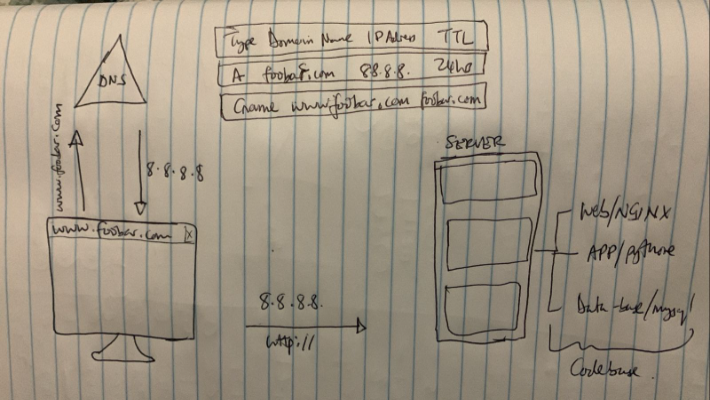 Type Domain Name IP Adress TTL
A foobar.com 88.8.8. 24hs
Cname www.foobar.com foobar.com
DNS
www.foobar.com
8.8.8.8
www.foobar.com x
8.8.8.8.
http://
SERVER
Web/NGINX
APP/
Data-base/mysql
Codebase